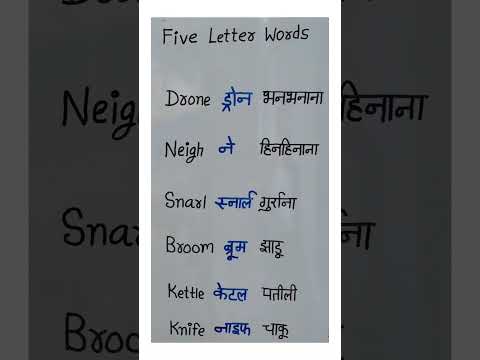 Five Letter Words
Drone ड्रोन भनभनाना
Neigh ने हिनहिनाना
Snarl स्नार्ल गुर्राना
Broom ब्रूम झाडू
Kettle केटल पतीली
Knife नाइफ चाकू